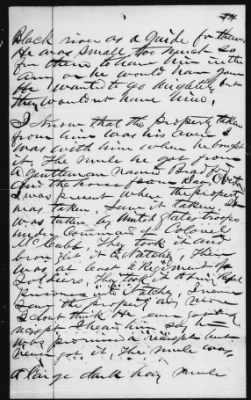 Black river as a guide for them
He was small too much so
for them to have him in the
army or he would have gone
He wanted to go mighty but
they would not have him.
I know that the property taken
from him was his own I
was with him when he bought
it. The mule he got from
a gentleman named
and the horse
I was present when the property
was taken, I saw it taken, it
was taken by United States troops
under Command of Colonel
McCabb They took it and
brought it to Natchez, there
was at least a Regiment of
Soldiers, They took it
to Natchez, I never
saw the property any more
I dont think He ever got any
receipt I heard him say he
was promised a receipt but
never got it, The mule was
a large dark bay mule